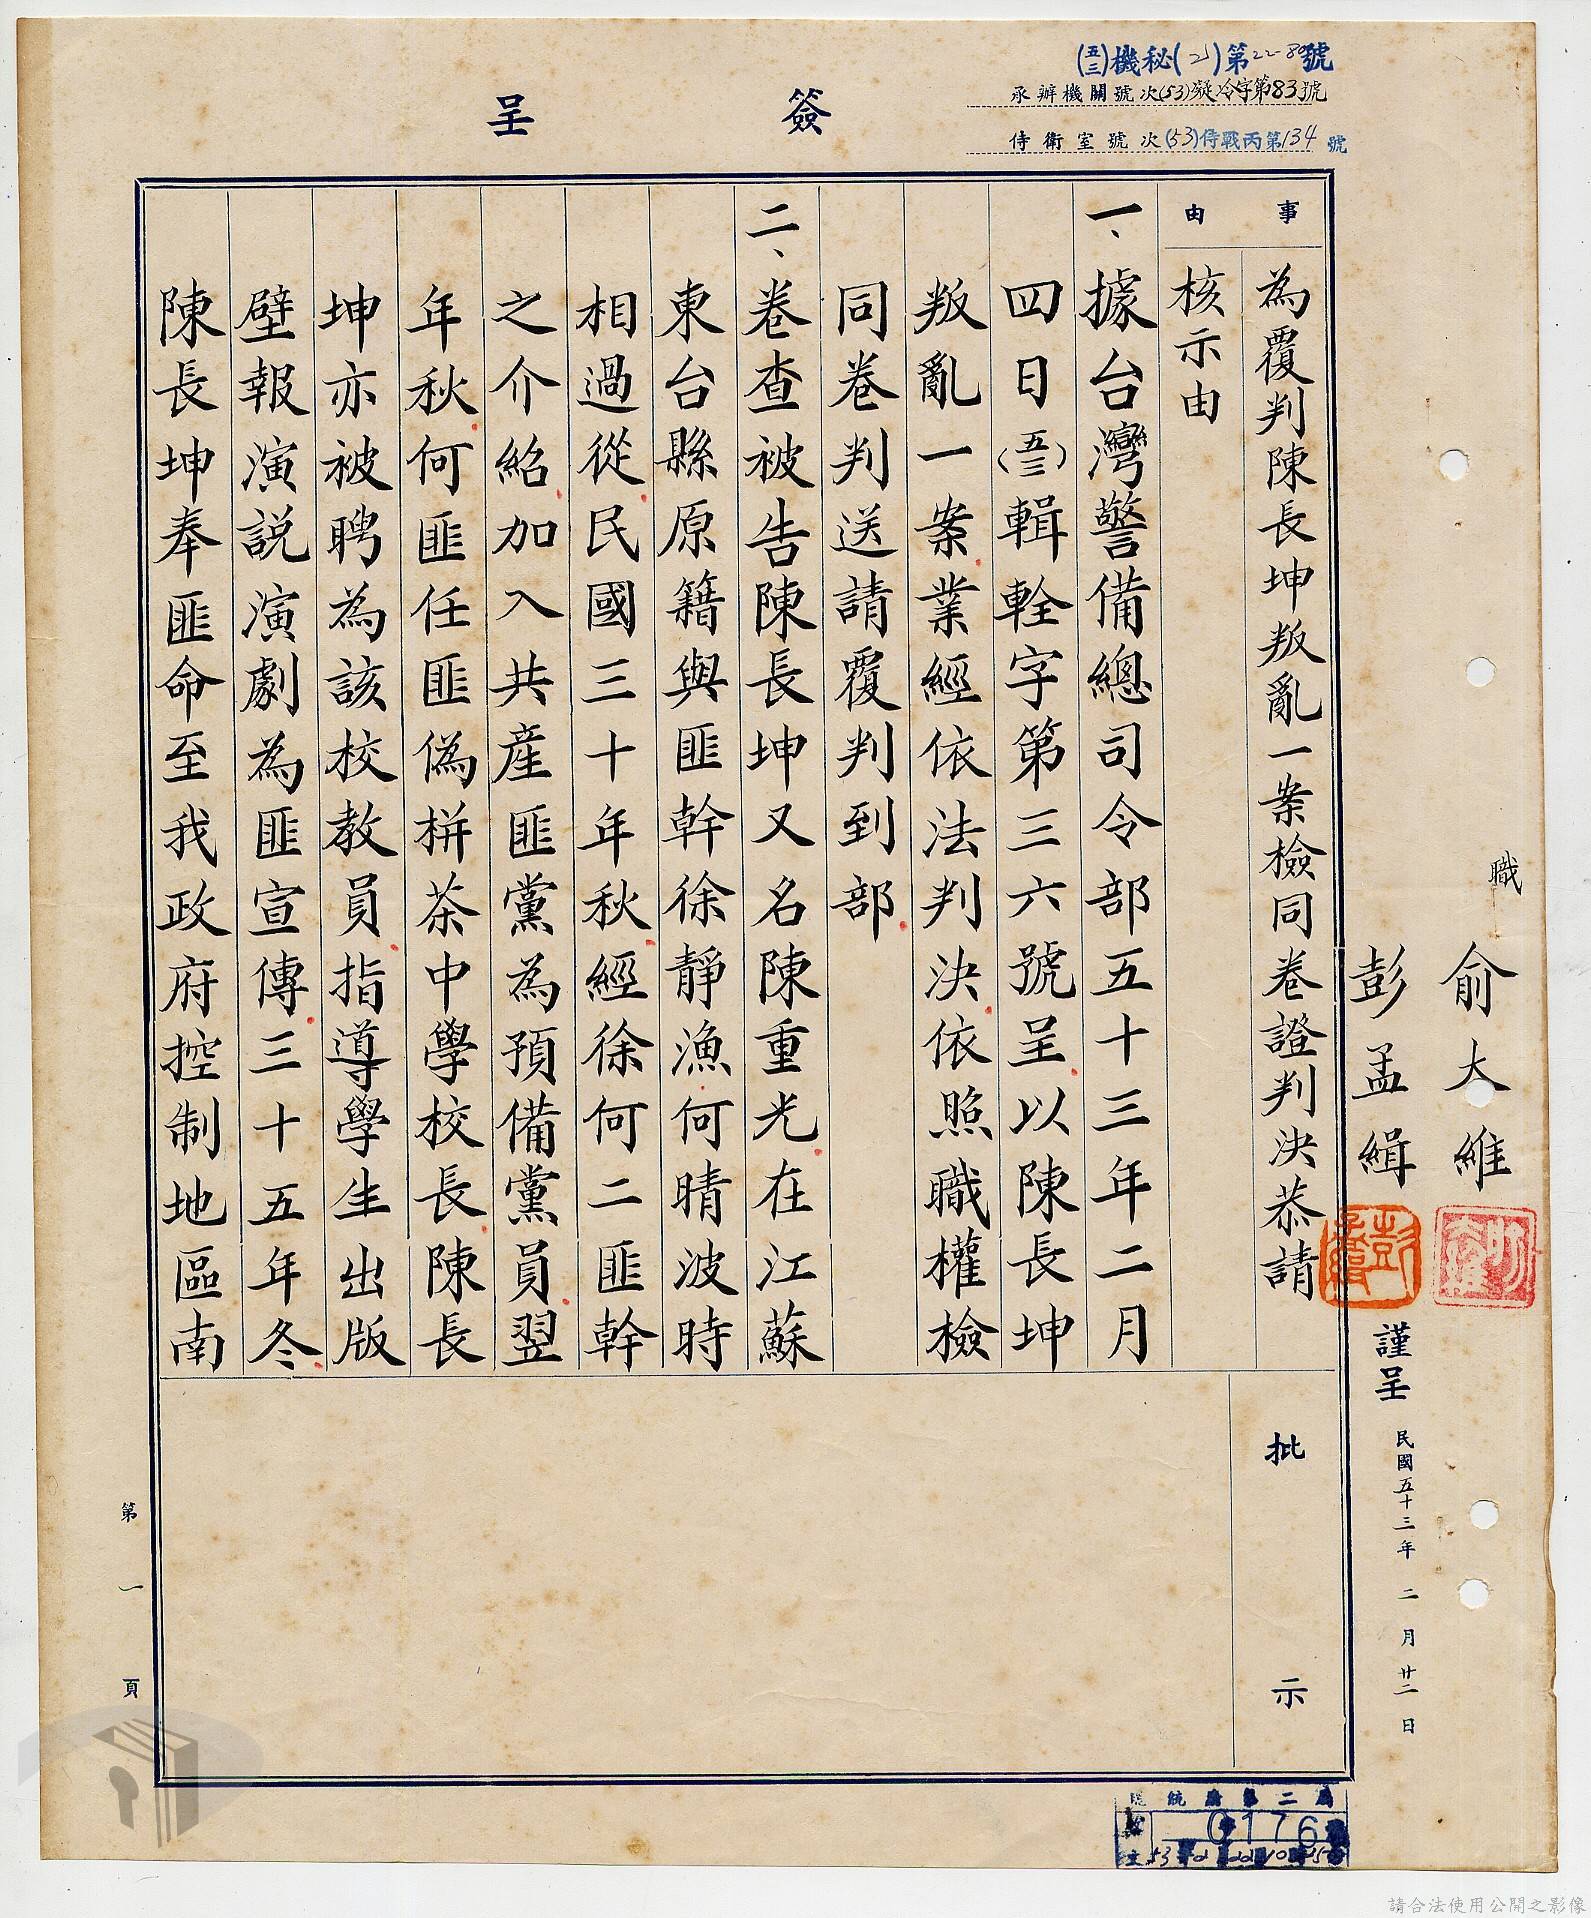 (五三)機秘(乙)第22-80號
承辦機關號次(53)凝冷字第83號
侍衛室號次(53)侍戰丙第134號
簽呈
職
俞大維
彭孟緝
謹呈
民國五十三年二月廿二日
事由
為覆判陳長坤叛亂一案檢同卷證判決恭請
核示由
一、據台灣警備總司令部五十三年二月
四日(五三)輯軽字第三六號呈以陳長坤
叛亂一案業經依法判決依照職權檢
同卷判送請覆判到部
二、卷查被告陳長坤又名陳重光在江蘇
東台縣原籍與匪幹徐靜漁何晴波時
相過從民國三十年秋經徐何二匪幹
之介紹加入共產匪黨為預備黨員翌
年秋何匪任匪偽栟茶中學校長陳長
坤亦被聘為該校教員指導學生出版
壁報演説演劇為匪宣傳三十五年冬
陳長坤奉匪命至我政府控制地區南
批示
第一頁
總統府第二局
0176
請合法使用公開之影像